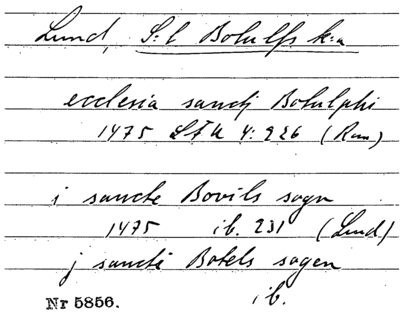 Lund, S:t Botulfs k:a
ecclesia sancti Botulphi
1475 LÄU 4:226 (Rom)
i sancte Bovils sogn
1475 ib. 231 (Lund)
j sancte Botels sogen
ib.
Nr 5856.